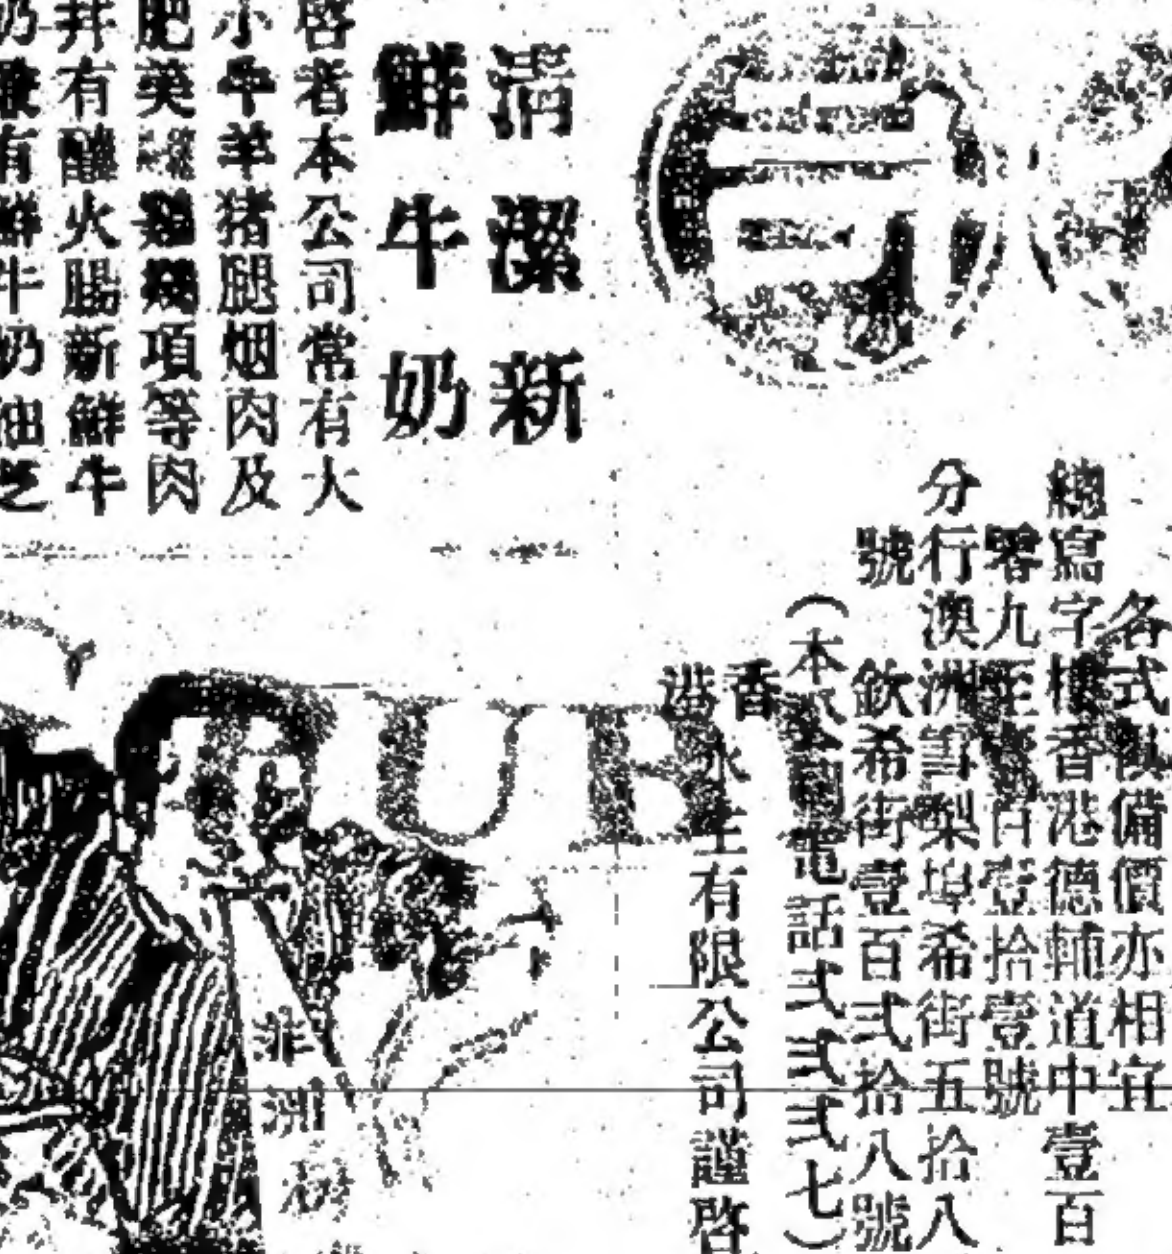 清潔新
鮮牛奶
啓者本公司常有大
小牛羊猪腿烟肉及
肥美鷄項等肉
并有火腸新鮮牛
奶有鮮牛奶油芝
各式俱備價亦相宜
總寫字樓香港德輔道中壹百
零九至壹百壹拾壹號
分行澳洲雪梨埠希街五拾八
號 欽希街壹百弍拾八號
(本公司電話弍弍弍七)
香港
永生有限公司謹啓
UB
非洲樹